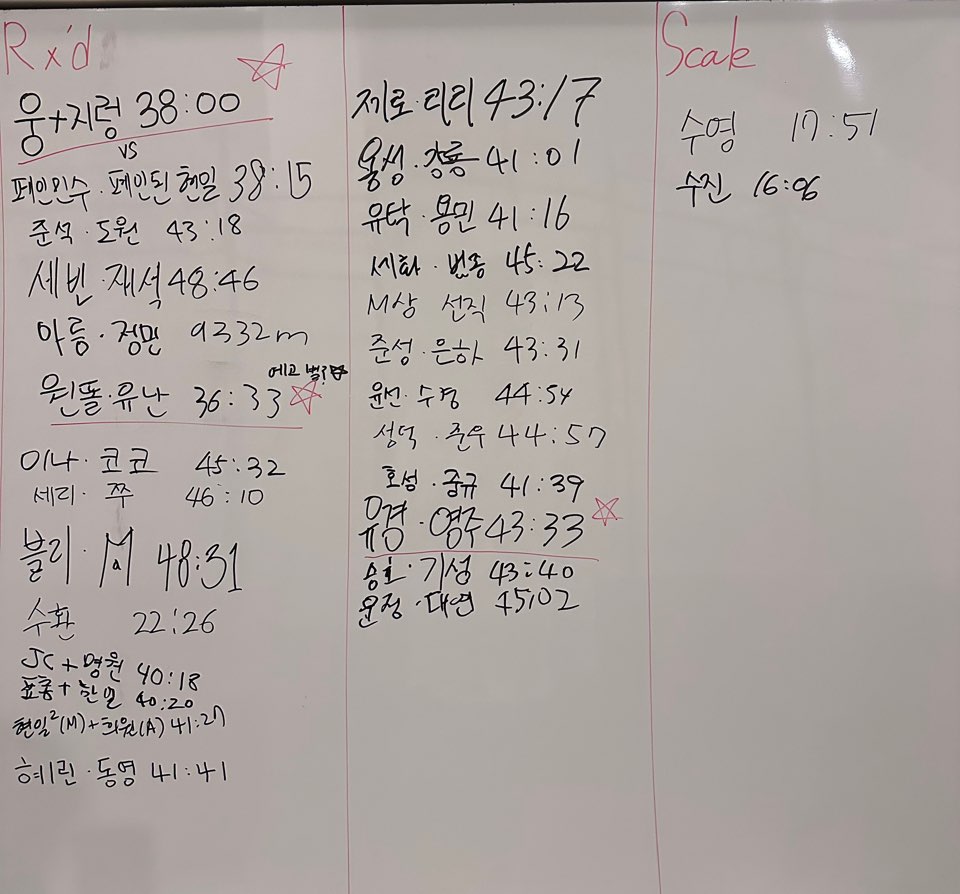 Rx'd
웅+지렁 38:00
vs
페인민수·페인된현일 38:15
준석·도원 43:18
세빈·재석 48:46
아름·정민 9332m
에고
원똘·유난 36:33
이나·코코 45:32
세리·쭈 46:10
블리· 48:31
수환 22:26
JC+명원 40:18
표홍+한일 40:20
현일²(M)+희원(A) 41:27
혜린·동영 41:41
제로·리리 43:17
용성·강룡 41:01
유탁·용민 41:16
세화·번송 45:22
M상 선직 43:13
준성·은하 43:31
윤선·수경 44:54
성덕·준우 44:57
호성·중규 41:39
유경·영주 43:33
승호·기성 43:40
윤정·대연 45:02
Scale
수영 17:51
수진 16:06